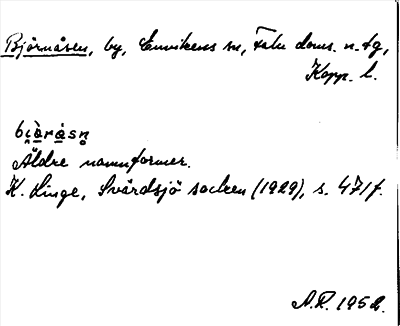 Björnåsen, by, Envikens sn, Falu doms. n. tg,
Kopp. l.
Äldre namnformer.
K. Linge, Svärdsjö socken (1929), s. 471f.
A.R. 1952.